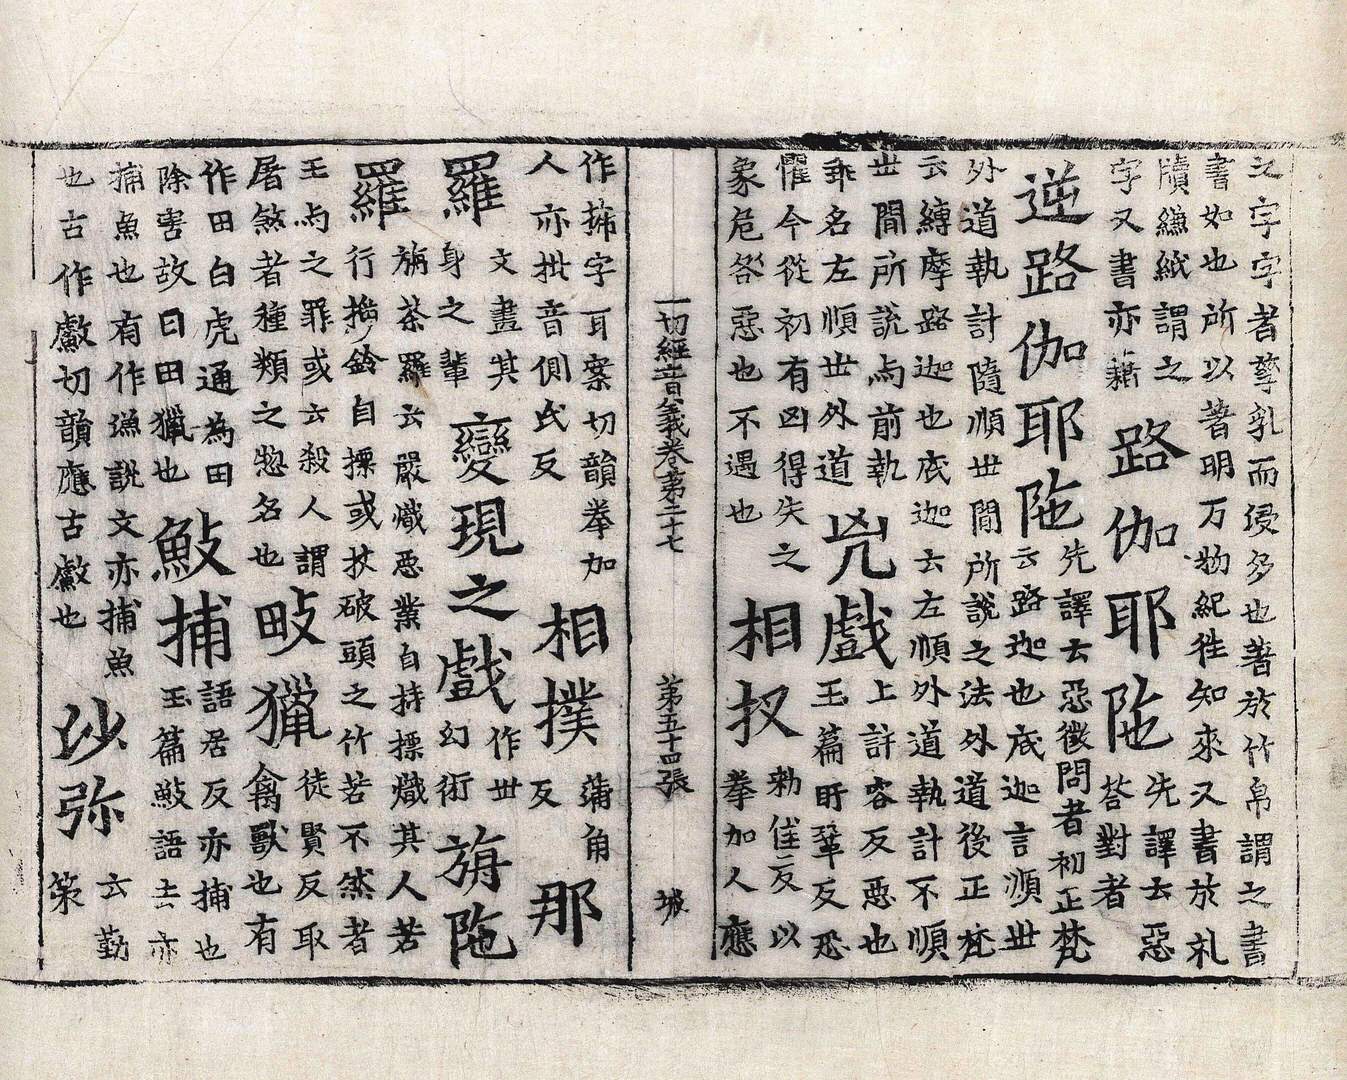 之字字者孳乳而浸多也著於竹帛謂之書
書如也所以著明万物紀徃知來又書於札
牘縑紙謂之
字又書亦籍
路伽耶陁
先譯云惡
荅對者
逆路伽耶陁
先譯云惡徵問者初正梵
云路迦也底迦言順世
外道執計隨順世間所說之法外道後正梵
云縛摩路迦也底迦云左順外道執計不順
世間所說与前執
乖名左順世外道
兇戲
上許容反惡也
玉篇盱鞏反恐
懼今從初有凶得失之
象危咎惡也不遇也
相扠
勑佳反以
拳加人應
一切經音義卷第二十七 第五十四張
作字耳案切韻拳加
人亦批音側氏反
相撲
蒲角
反
那
羅
文畫其
身之輩
變現之戲
作世
幻術
旃陁
羅
旃荼羅云嚴熾惡業自持摽熾其人若
行搖鈴自摽或扙破頭之竹若不然者
王与之罪或云殺人謂
屠煞者種類之惣名也
畋獵
徒賢反取
禽獸也有
作田白虎通為田
除害故曰田獵也
䱷捕
語居反亦捕也
玉篇䱷語去亦
捕魚也有作漁說文亦捕魚
也古作切韻應古也
沙弥
云勤
策